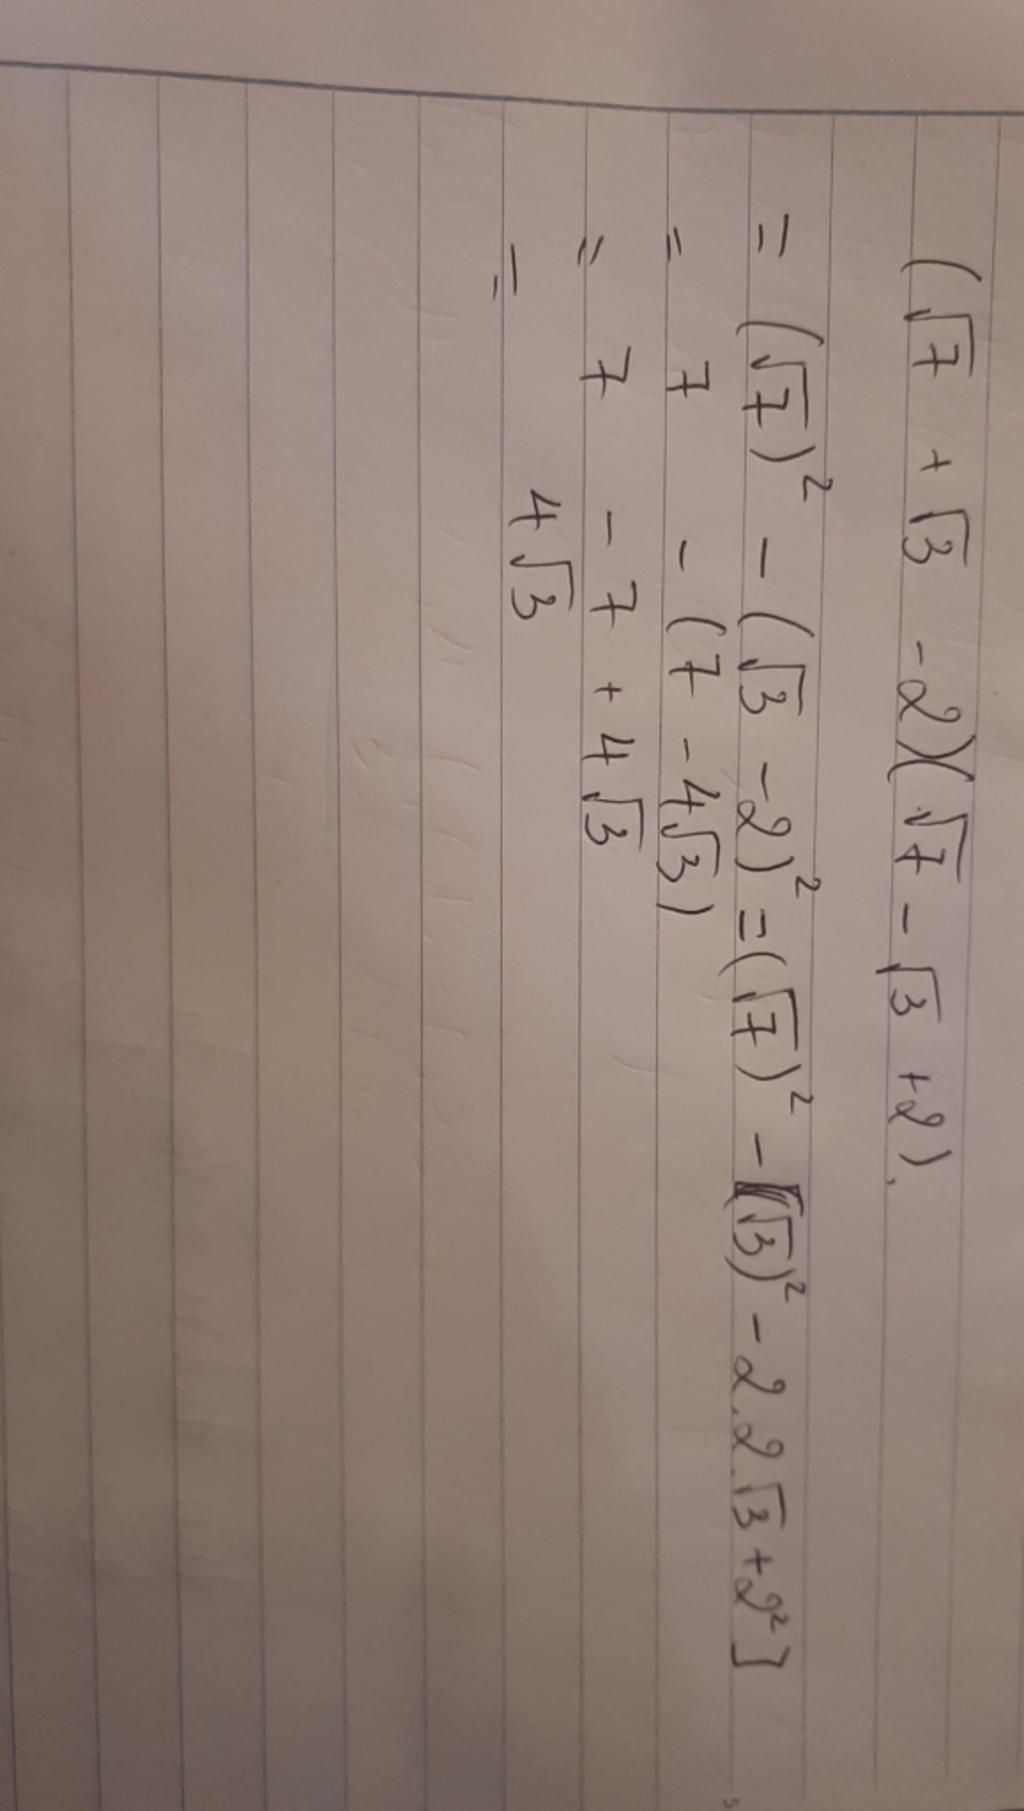 (√7 + √3 - 2)(√7 - √3 + 2).
= (√7)² - (√3 - 2)² = (√7)² - [(√3)² - 2.2.√3 + 2²]
= 7 - (7 - 4√3)
= 7 - 7 + 4√3
= 4√3